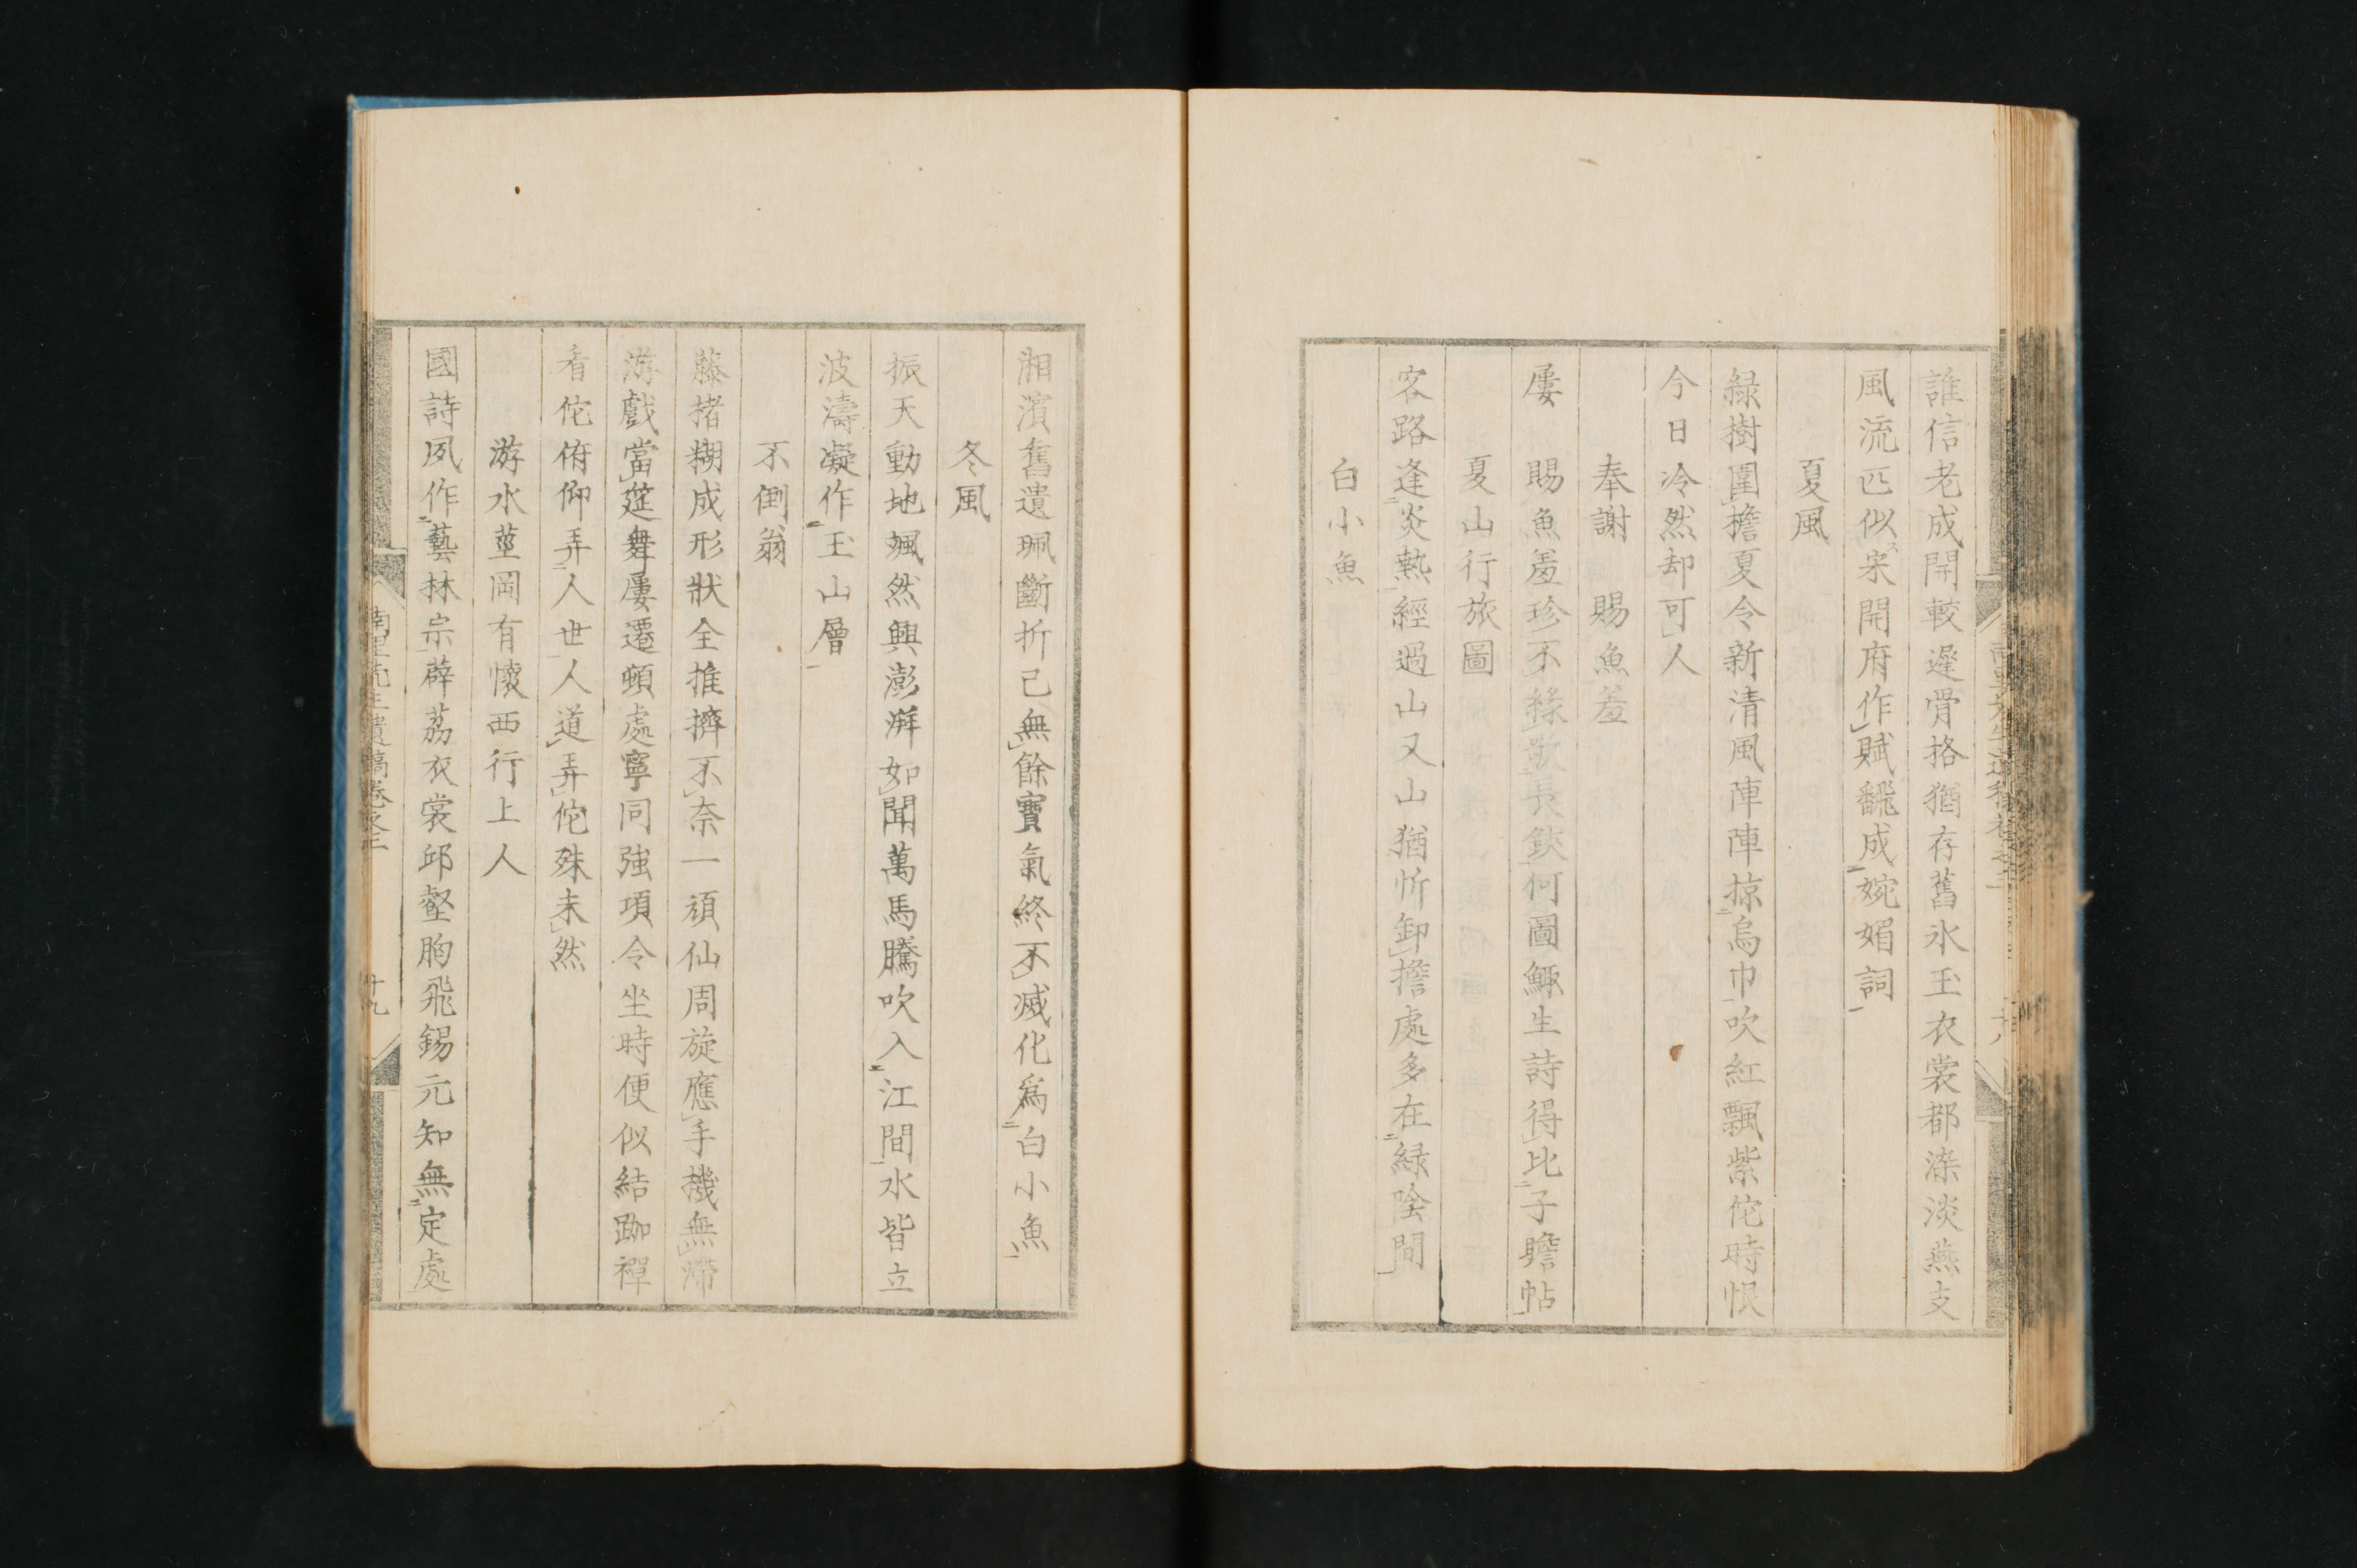 誰信老成開較遲骨格猶存舊氷玉衣裳都染淡燕支
風流匹似宋開府作賦飜成婉媚詞
夏風
緑樹圍檐夏令新清風陣陣掠烏巾吹紅飄紫佗時恨
今日冷然却可人
奉謝　賜魚羞
屢　賜魚羞珍不絲歌長鋏何圖鯫生詩得比子瞻帖
夏山行旅圖
客路逢炎熱經過山又山猶忻卸擔處多在緑陰間
白小魚
湘濱舊遺珮斷折已無餘寶氣終不滅化爲白小魚
冬風
振天動地颯然興澎湃如聞萬馬騰吹入江間水皆立
波濤凝作玉山層
不倒翁
藤楮糊成形狀全推擠不奈一頑仙周旋應手機無滯
游戲當筵舞屢遷頓處寧同強項令坐時便似結跏禪
看佗俯仰弄人世人道弄佗殊未然
游水莖岡有懷西行上人
國詩夙作藝林宗薜荔衣裳邱壑胸飛錫元知無定處
南里先生遺稿卷之三
十九